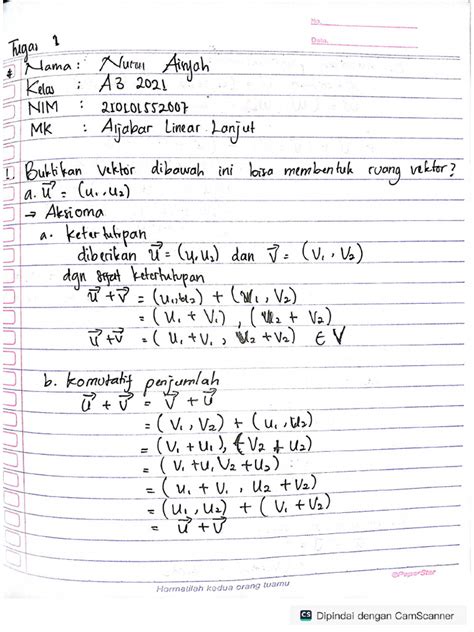 No.
Date.
Tugas 1
Nama : Nurul Ainyah
Kelas : A3 2021
NIM : 210101552007
MK : Aljabar Linear Lanjut
1. Buktikan vektor dibawah ini bisa membentuk ruang vektor?
a. u⃗ = (u₁, u₂)
→ Aksioma
a. ketertutupan
diberikan u⃗ = (u₁, u₂) dan v⃗ = (v₁, v₂)
dgn sifat ketertutupan
u⃗ + v⃗ = (u₁, u₂) + (v₁, v₂)
= (u₁ + v₁), (u₂ + v₂)
u⃗ + v⃗ = (u₁ + v₁, u₂ + v₂) ∈ V
b. komutatif penjumlah
u⃗ + v⃗ = v⃗ + u⃗
= (v₁, v₂) + (u₁, u₂)
= (v₁ + u₁), (v₂ + u₂)
= (v₁ + u₁, v₂ + u₂)
= (u₁ + v₁, u₂ + v₂)
= (u₁, u₂) + (v₁ + v₂)
= u⃗ + v⃗
©PaperStar
Hormatilah kedua orang tuamu
CS Dipindai dengan CamScanner